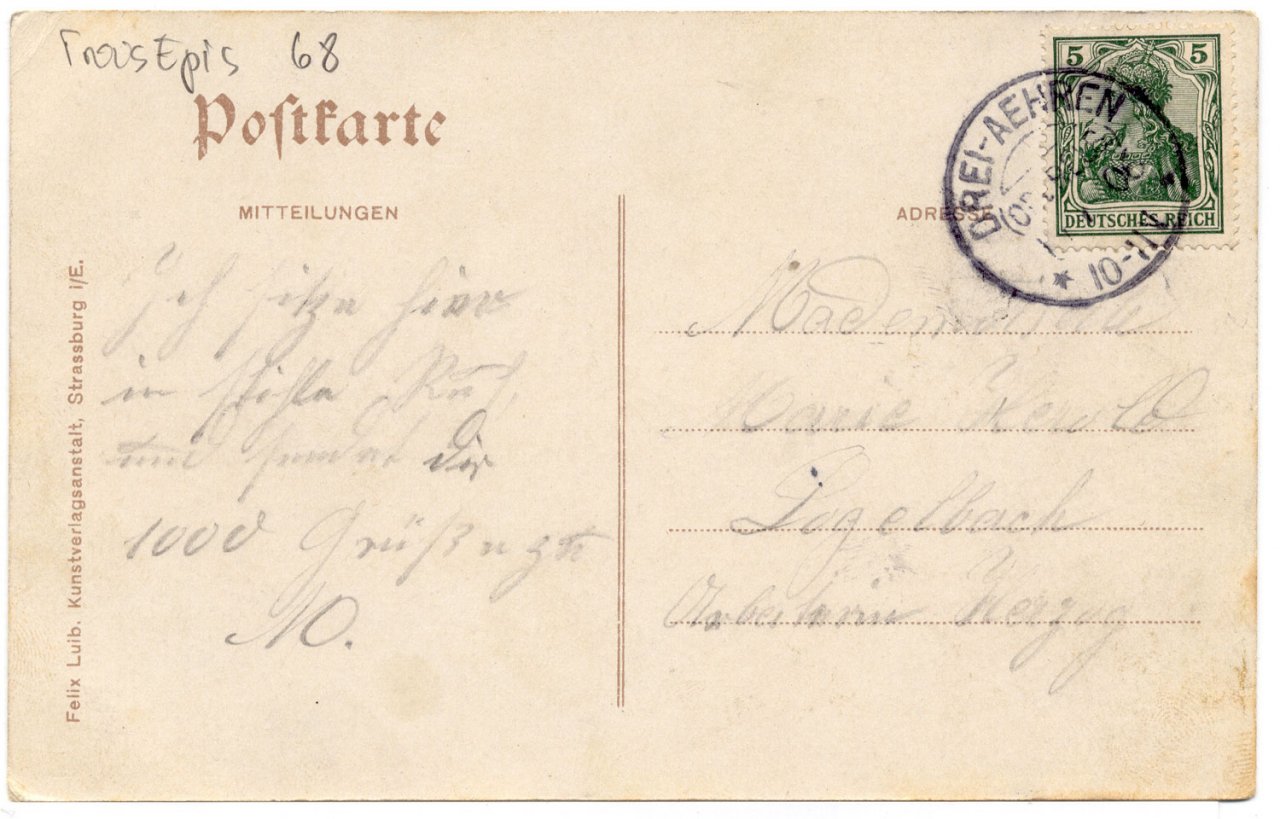 Trois Epis 68
Postkarte
MITTEILUNGEN
ADRESSE
5 5
DEUTSCHES REICH
DREI-AEHREN
10-11
Felix Luib. Kunstverlagsanstalt, Strassburg i/E.
Ich sitze hier
in stiller Ruh,
und sendet dir
1000 Grüße
M.
Mademoiselle
Marie Herold
Logelbach
Arbeiterin Herzog